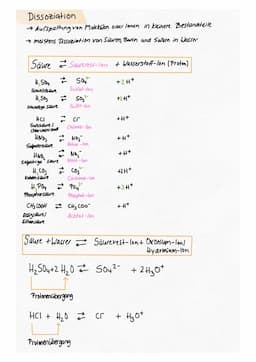 Dissoziation
→ Aufspaltung von Molekülen oder Ionen in kleinere Bestandteile
→ meistens Dissoziation von Säuren, Basen und Salzen in Wasser
Säure ⇌ Säurerest-Ion + Wasserstoff-Ion (Proton)
H₂SO₄ ⇌ SO₄²⁻ +2H⁺
Schwefelsäure Sulfat-Ion
H₂SO₃ ⇌ SO₃²⁻ +2H⁺
Schweflige Säure Sulfit-Ion
HCl ⇌ Cl⁻ +H⁺
Salzsäure / Chlorid-Ion
HNO₃ ⇌ NO₃⁻ +H⁺
Salpetersäure Nitrat-Ion
HNO₂ ⇌ NO₂⁻ +H⁺
Salpetrige Säure Nitrit-Ion
H₂CO₃ ⇌ CO₃²⁻ +2H⁺
Kohlensäure Carbonat-Ion
H₃PO₄ ⇌ PO₄³⁻ +3H⁺
Phosphorsäure Phosphat-Ion
CH₃COOH ⇌ CH₃COO⁻ +H⁺
Essigsäure Acetat-Ion
Säure + Wasser ⇌ Säurerest-Ion + Oxonium-Ion/
Hydronium-Ion
H₂SO₄ + 2 H₂O ⇌ SO₄²⁻ + 2H₃O⁺
Protonenübergang
HCl + H₂O ⇌ Cl⁻ + H₃O⁺
Protonenübergang